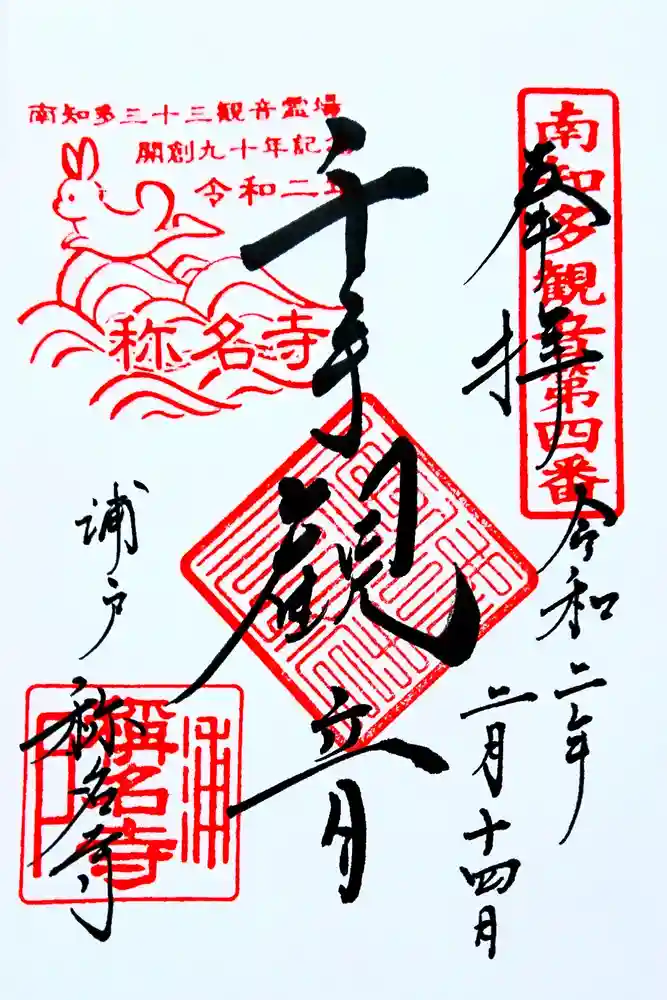 奉拝
南知多観音第四番
令和二年
二月十四日
千手觀音
南知多三十三観音霊場
開創九十年記念
令和二年
称名寺
浦戸
称名寺
稱名寺